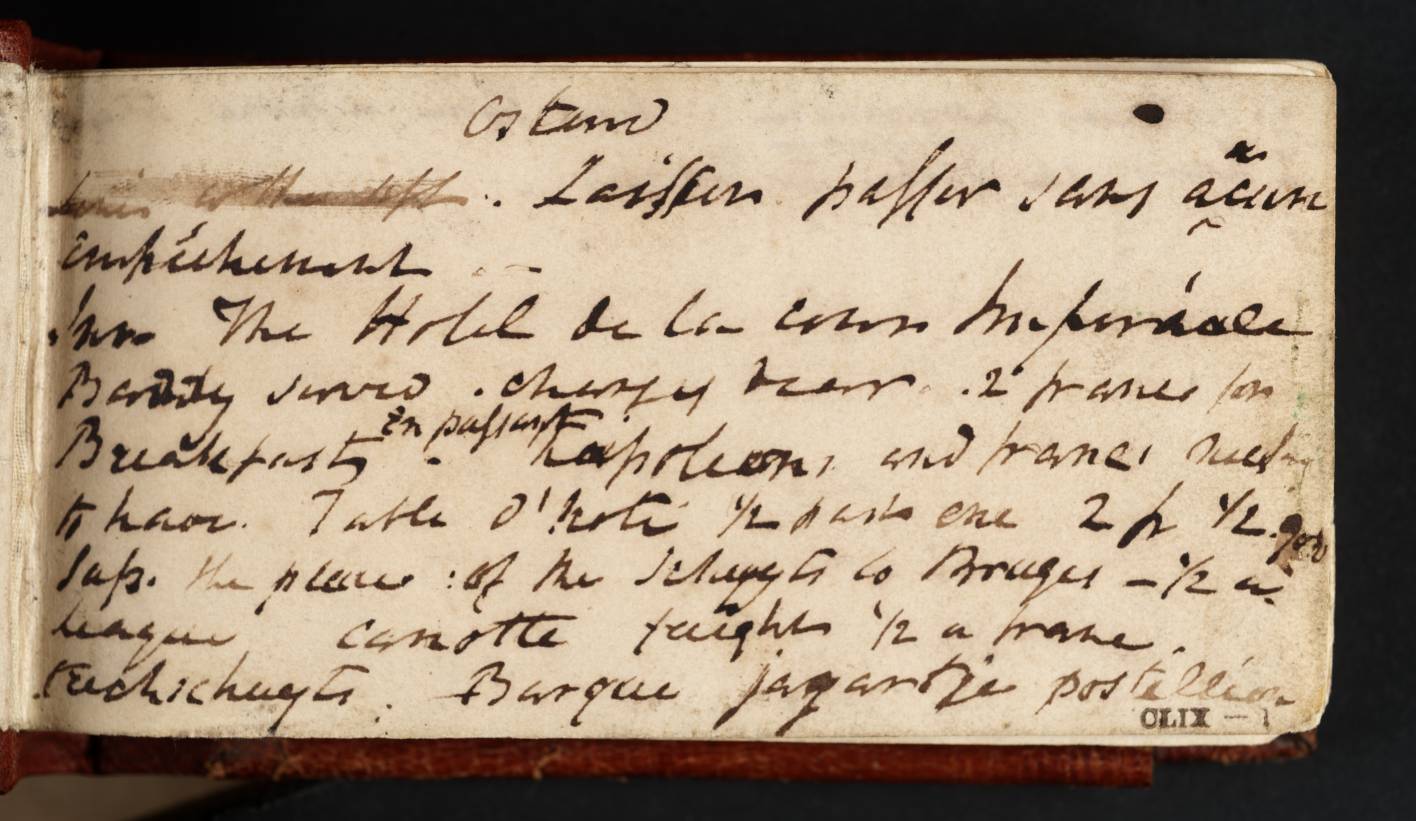 Ostend
. Laissen passer sans aucun
empêchement
Inn. The Hotel de la cour Imperiale
Badly served . charges dear . 2 francs for
Breakfast . En passant Napoleons and francs
to have. Table d'hote ½ past one 2 fr ½
the place of the Schuyts to Bruges – ½ a
league carrotte freight ½ a franc.
treckschuyts . Barque jagartje postillion
CLIX – 1